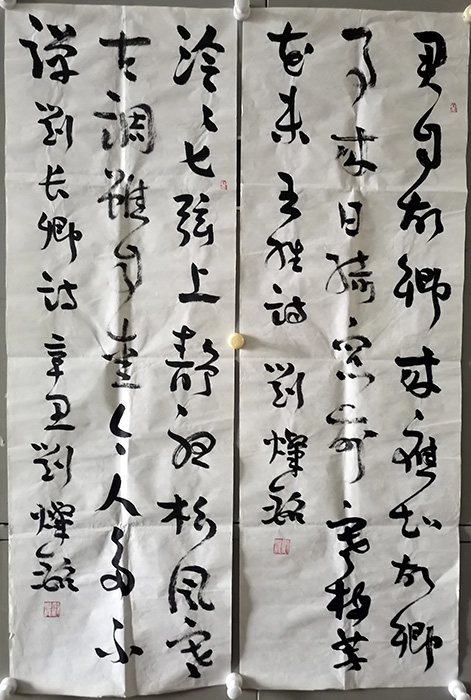 君自故鄉來應知故鄉
事來日綺窗前寒梅著
花未 王維詩 劉燦銘
泠泠七弦上靜聽松風寒
古調雖自愛今人多不
彈 劉長卿詩 辛丑劉燦銘